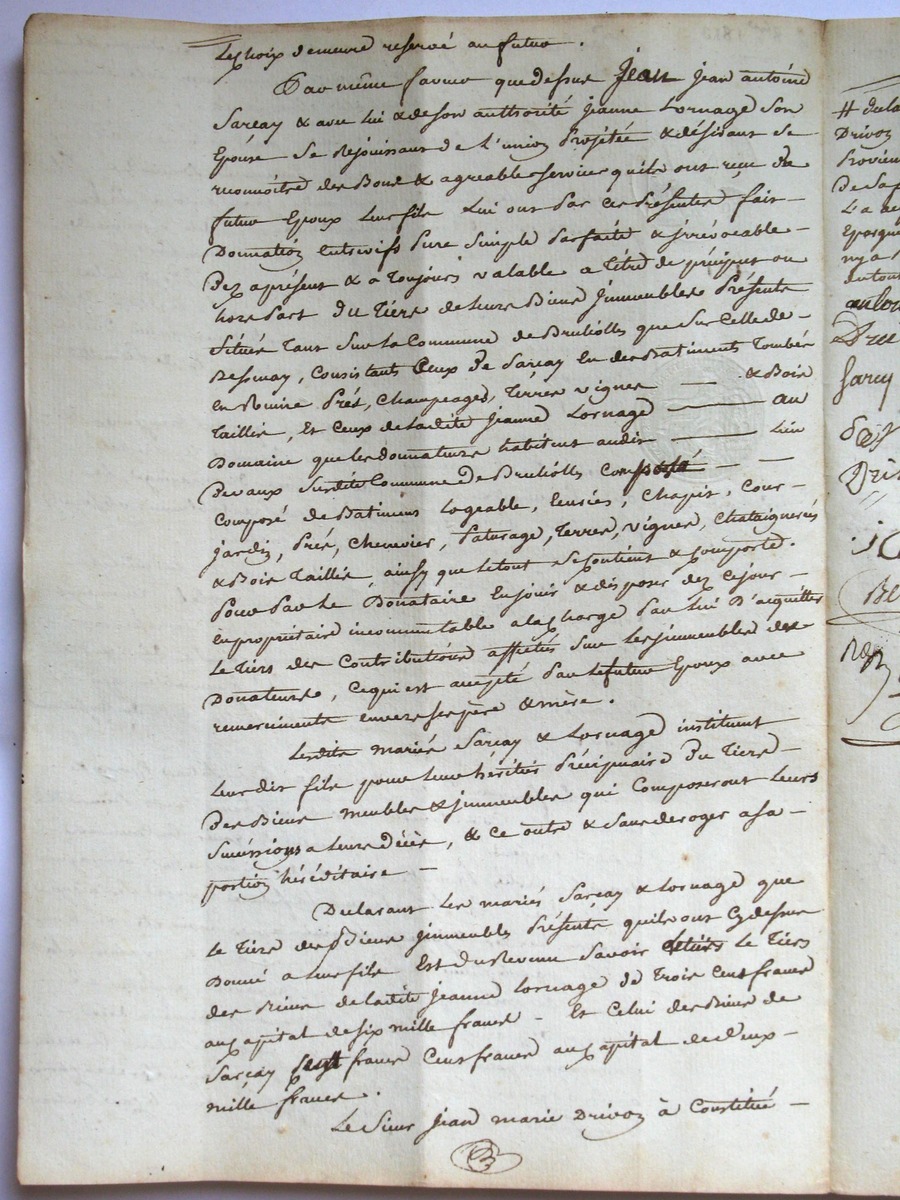 Le choix demeure reservé au futur.
Par même faveur que dessus Jean Jean antoine
Sarcay & avec lui & de son authorité Jeanne Lornage son
Epouse se rejouissant de l'union projetée & désirant se
reconnoître des Bons & agreables services quils ont reçu du
futur Epoux leur fils lui ont par ces présentes fait –
Donnation entrevifs pure simple parfaite & irrévocable –
Dez aprésent & a toujours valable a titre de précipus ou
hors part du tiers de leurs Biens immeubles présents
situés tant sur la Commune de Brulioles que sur celle de –
Bessenay, Consistants Ceux de Sarcay en des Batiments tombés
en Ruine prés, Champeages, terres vignes — & Bois
taillis, Et Ceux de ladite Jeanne Lornage — au
Domaine que les donnateurs habitent audit — Lieu
Devaux susdite Commune de Brulioles — —
Composé de Batimens logeable, Ecuries, Chapis, Cour –
Jardin, prés, Chenevier, paturage, terres, vignes, Chataigneraies
& Bois taillis, ainsy que le tout se contient & comporte.
pour par le Donataire en jouir & disposer dez cejour –
en propriétaire incommutable a la charge par lui D'acquitter
le tiers des Contributions affectés sur les immeubles des
Donateurs, Ce qui est accepté par le futur Epoux avec
remerciments envers ses père & mère.
Lesdits mariés Sarcay & Lornage instituent
Leurdit fils pour leur héritier précipuaire du tiers –
Des Biens meubles & immeubles qui Composeront leurs
successions a leurs décès, & ce outre & sans deroger a sa –
portion héréditaire –
Declarant les mariés Sarcay & Lornage que
le tiers des Biens immeubles présents quils ont Cydessus
Donné a leur fils Est du Revenu savoir le tiers
des Biens de ladite Jeanne Lornage de trois Cent francs
au Capital de six mille francs – Et Celui des Biens de
Sarcay francs Cent francs au Capital de deux –
mille francs.
Le Sieur Jean marie Drivon à Constitué –
# dela
Drivon
De sa p
L'a ac
Epargne
ny a
Driv
Sarcy
Driv